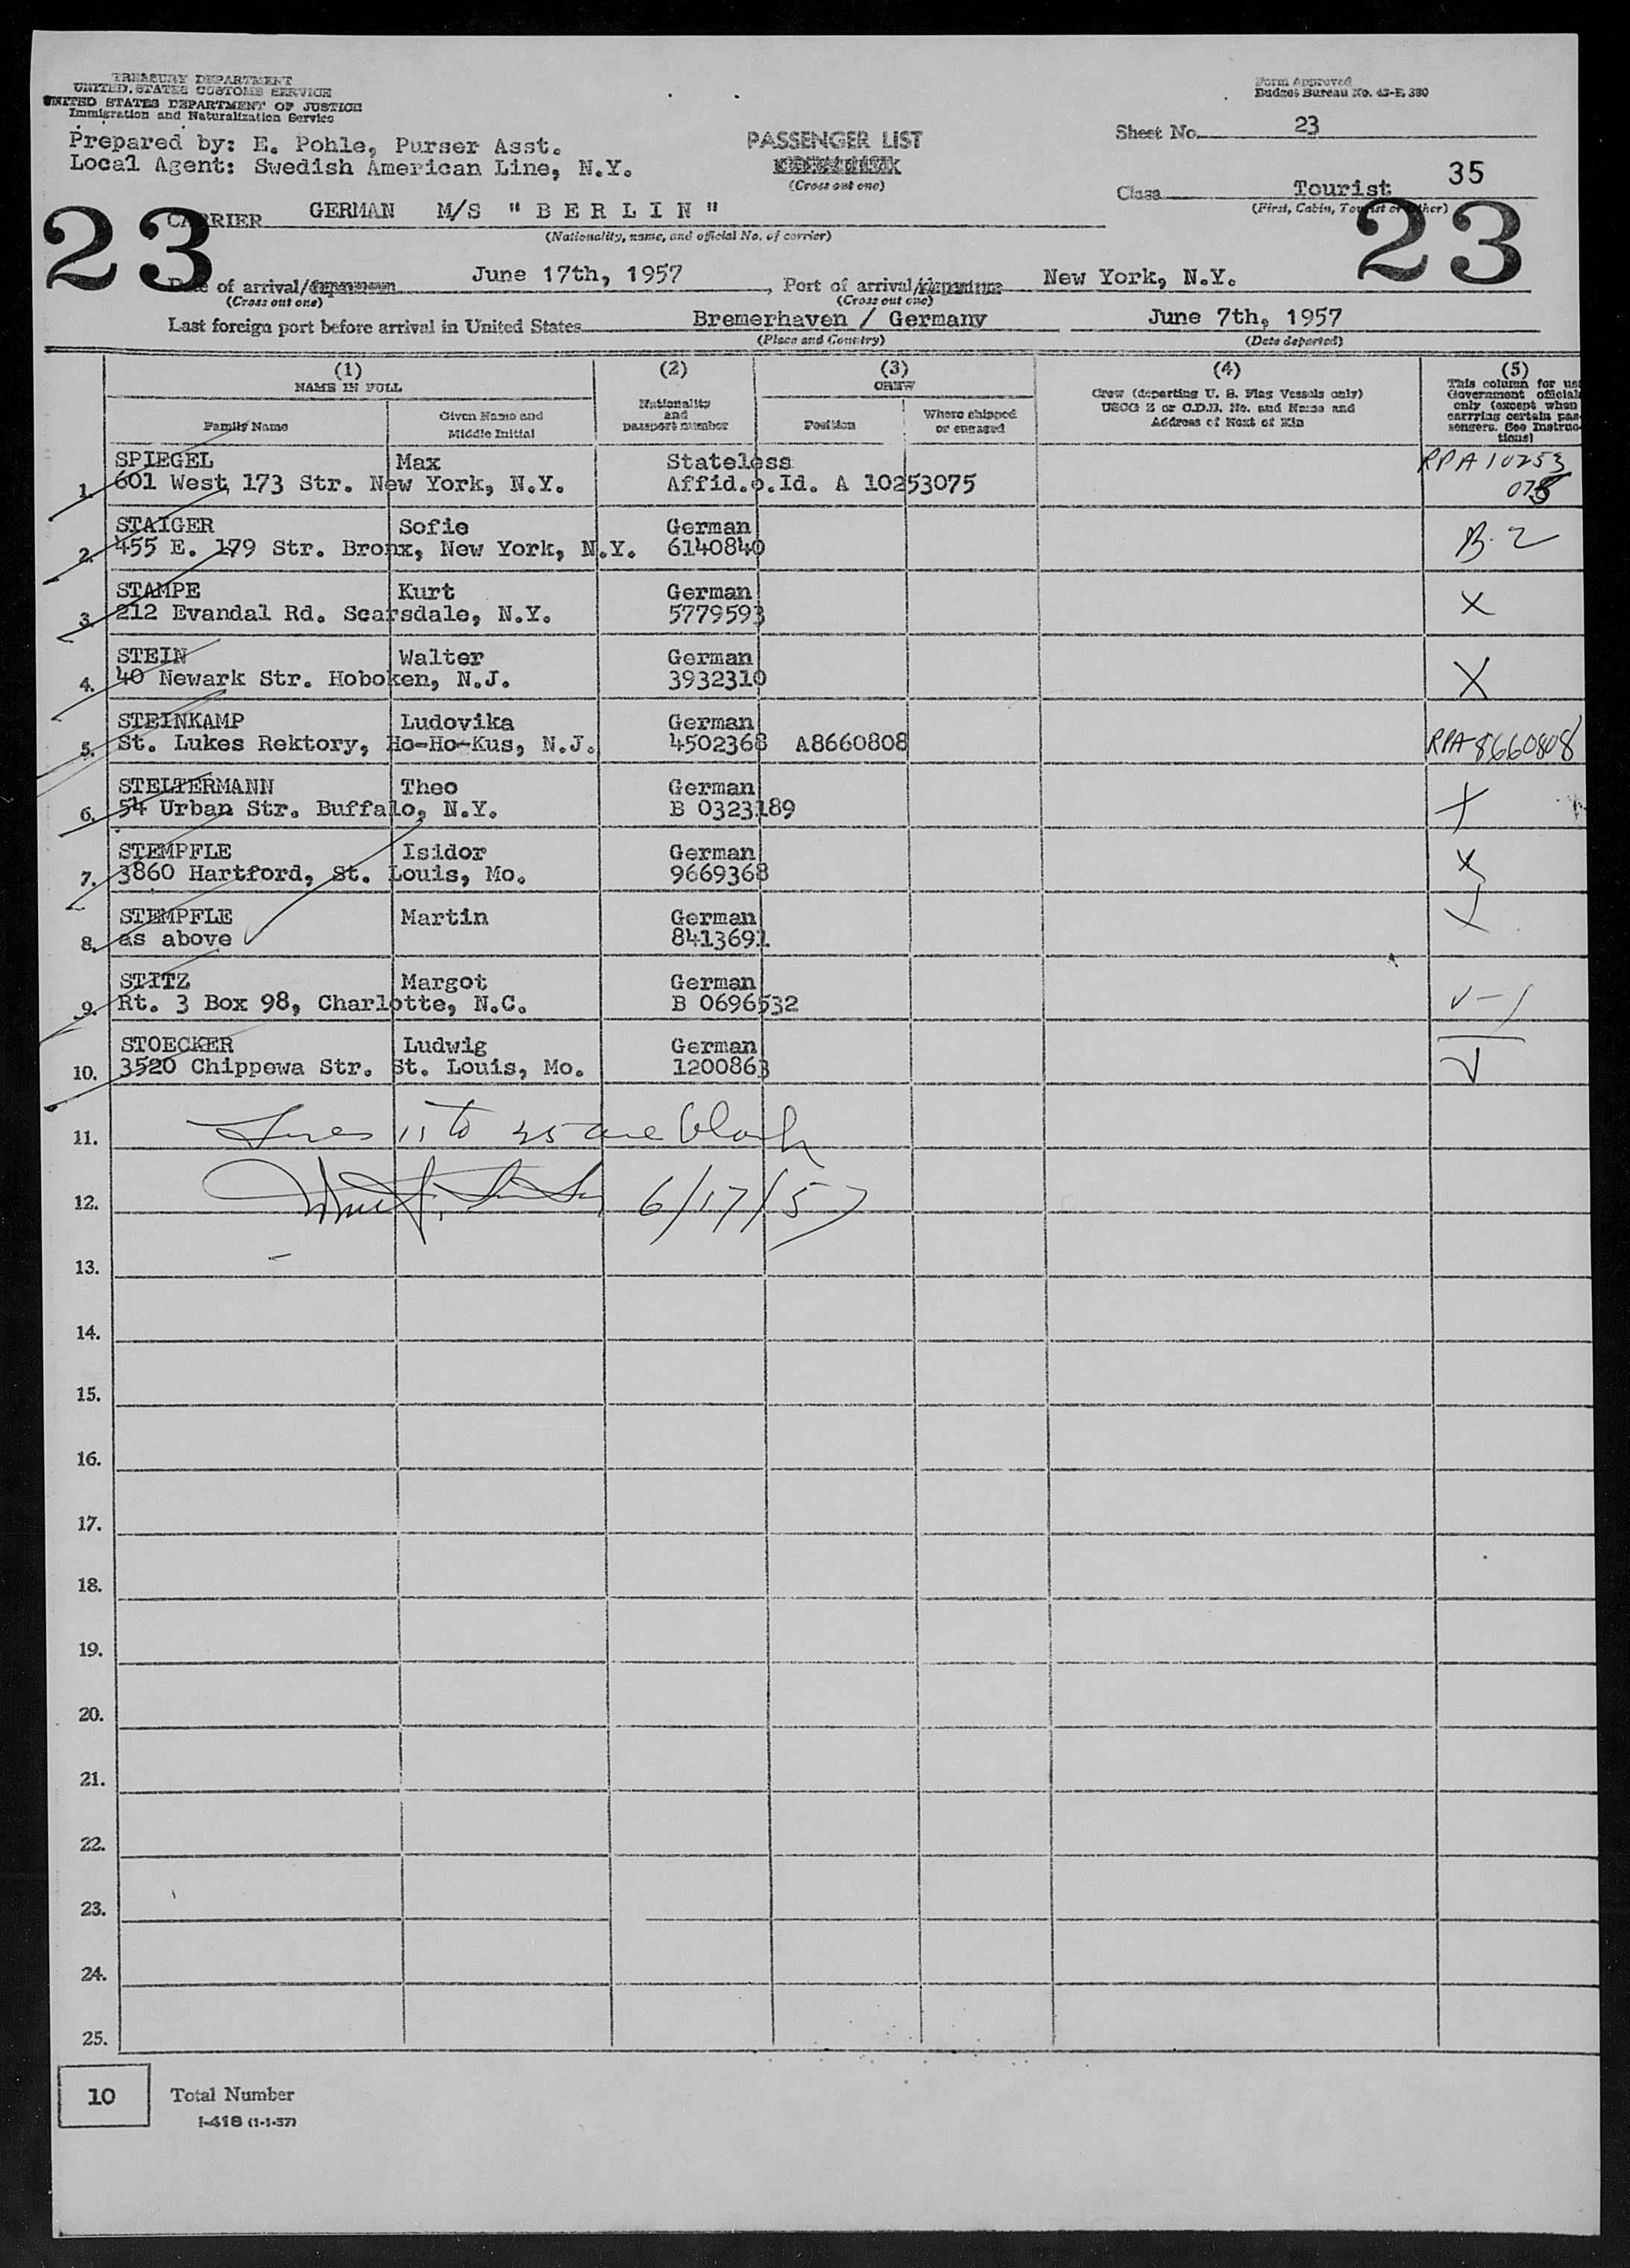 TREASURY DEPARTMENT
UNITED STATES CUSTOMS SERVICE
UNITED STATES DEPARTMENT OF JUSTICE
Immigration and Naturalization Service
Form Approved
Budget Bureau No. 43-R 380
Prepared by: E. Pohle, Purser Asst.
Local Agent: Swedish American Line, N.Y.
PASSENGER LIST
(Cross out one)
Sheet No. 23
Class Tourist 35
(First, Cabin, Tourist or other)
23
23
CARRIER GERMAN M/S "BERLIN"
(Nationality, name, and official No. of carrier)
Date of arrival/departure June 17th, 1957, Port of arrival/departure New York, N.Y.
(Cross out one) (Cross out one)
Last foreign port before arrival in United States Bremerhaven / Germany June 7th, 1957
(Place and Country) (Date departed)
(1) (2) (3) (4) (5)
NAME IN FULL
Family Name
Given Name and Middle Initial
Nationality and passport number
CREW
Position
Where shipped or engaged
Crew (departing U. S. Flag Vessels only)
USCG Z or C.D.B. No. and Name and
Address of Next of Kin
This column for use
Government officials
only (except when
carrying certain pas-
sengers. See Instruc-
tions)
SPIEGEL Max Stateless RPA 10253
1. 601 West 173 Str. New York, N.Y. Affid.o.Id. A 10253075 075
STAIGER Sofie German
2. 455 E. 179 Str. Bronx, New York, N.Y. 6140840 B-2
STAMPE Kurt German
3. 212 Evandal Rd. Scarsdale, N.Y. 5779593 X
STEIN Walter German
4. 40 Newark Str. Hoboken, N.J. 3932310 X
STEINKAMP Ludovika German
5. St. Lukes Rektory, Ho-Ho-Kus, N.J. 4502368 A8660808 RPA 8660808
STELTERMANN Theo German
6. 54 Urban Str. Buffalo, N.Y. B 0323189 X
STEMPFLE Isidor German
7. 3860 Hartford, St. Louis, Mo. 9669368 X
STEMPFLE Martin German
8. as above 8413691 X
STITZ Margot German
9. Rt. 3 Box 98, Charlotte, N.C. B 0696532
STOECKER Ludwig German
10. 3520 Chippewa Str. St. Louis, Mo. 1200863
11. Lines 11 to 25 are blank
12. 6/17/57
13.
14.
15.
16.
17.
18.
19.
20.
21.
22.
23.
24.
25.
10 Total Number
I-418 (1-1-57)